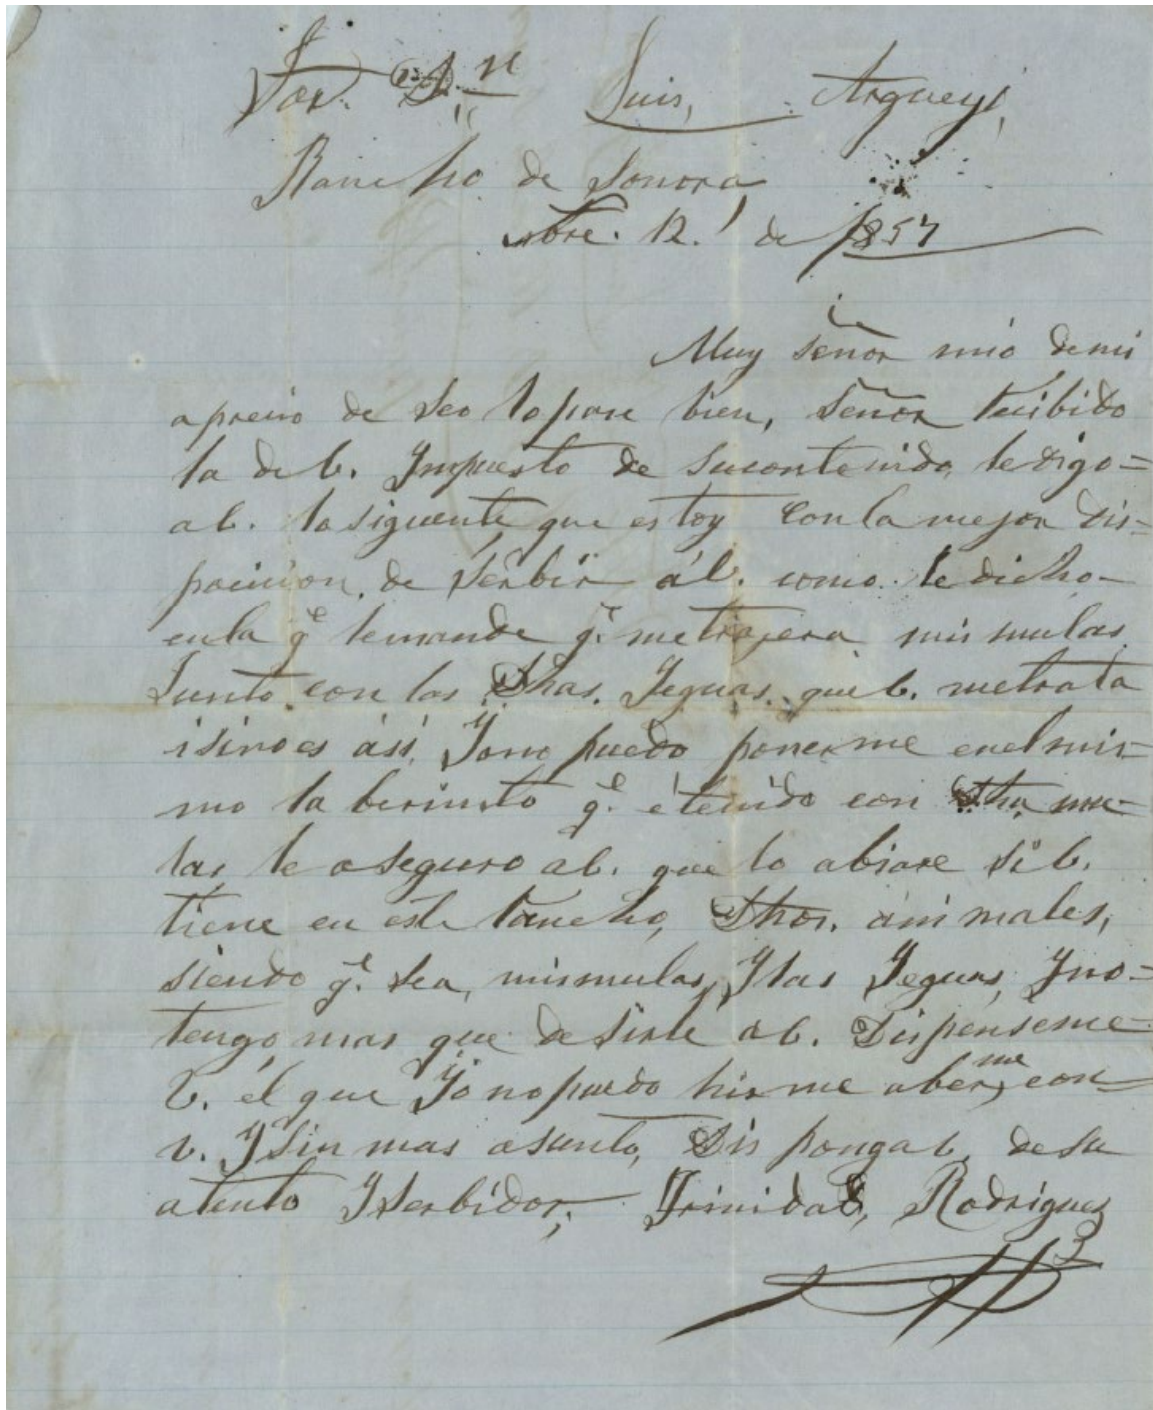 Sor. Dn Luis, Argueyi,
Rancho de Sonora
obre. 12. de 1857
Muy señor mio demi
aprecio de seo lo pase bien, señor recibido
la de b. Impuesto de sucontenido, ledigo=
ab. losiguente que estoy con la mejor dis-
pocicion, de serbir áb. como. le dicho-
enla qe lemande qe. metrajera, mis mulas
Junto con las Dhas. Yeguas. que b. metrata
isinoes ási, Yono puedo ponerme enelmis-
mo laberinto qe. é tenido con Dha mu-
las le aseguro ab. que lo abiare si b.
tiene en este rancho, Dhos. animales,
siendo qe. sea, mismulas, Ylas Yeguas, Yno-
tengo mas que desirle ab. Dispenseme
V. él que Yo nopuedo hirme aberme, con
v. Ysin mas asunto, Disponga b. de su
atento Yserbidor, Trinidad, Rodriguez